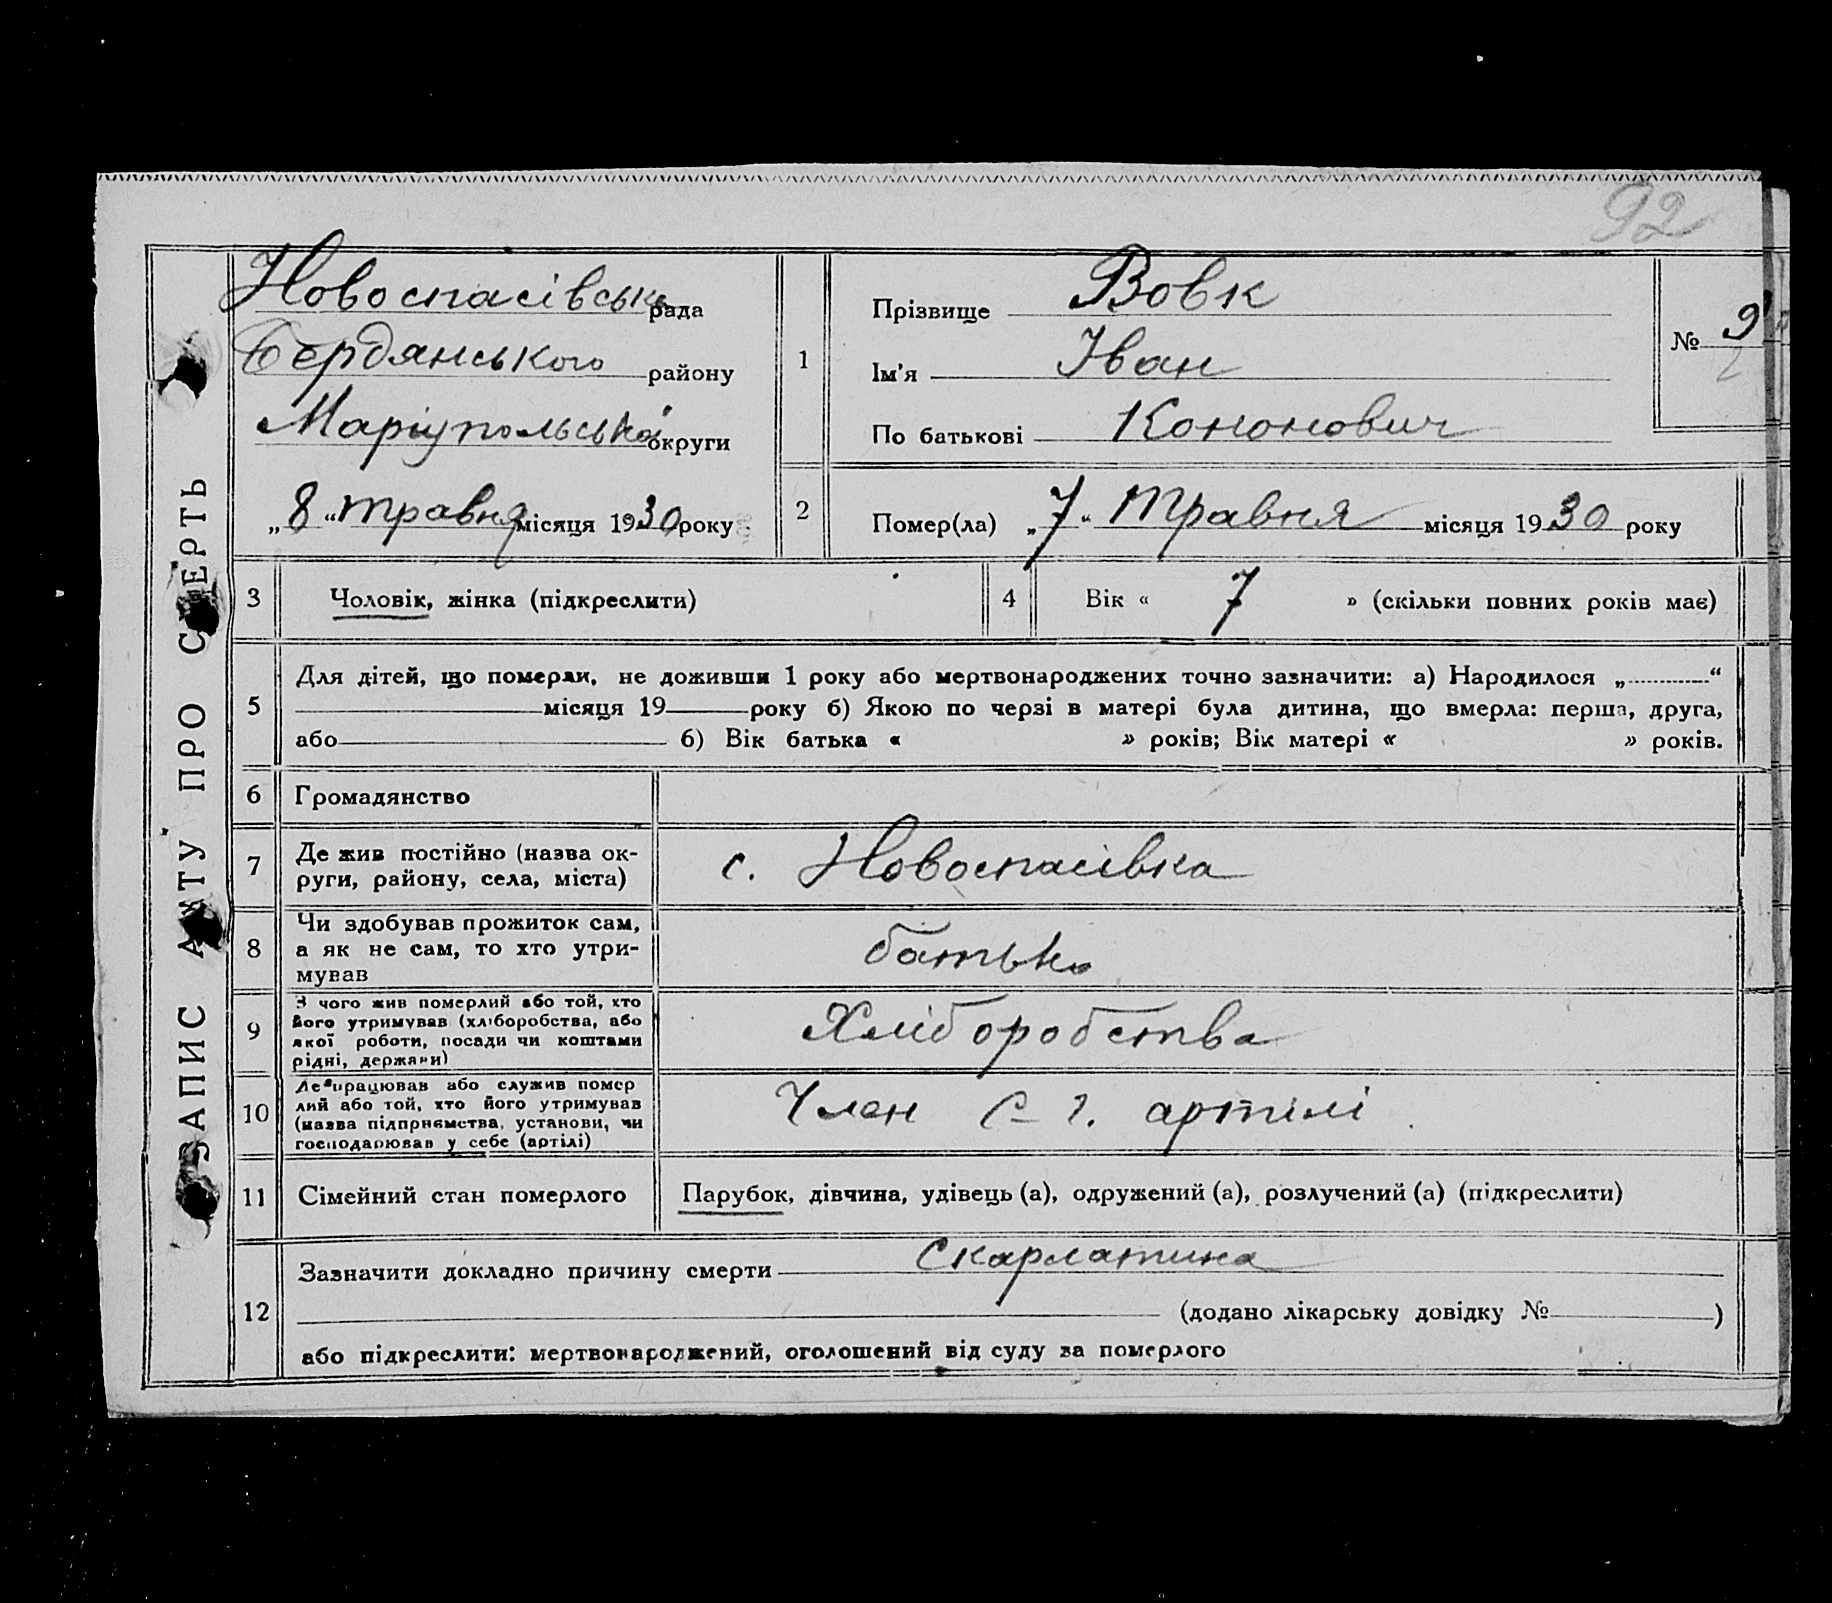 92
ЗАПИС АКТУ ПРО СМЕРТЬ
Новоспасівська рада
Бердянського району
Маріупольської округи
„ 8 “ травня місяця 1930 року
1
Прізвище Вовк
Ім'я Іван
По батькові Кононович
№ 9
2
Помер(ла) „ 7 “ Травня місяця 1930 року
3 Чоловік, жінка (підкреслити)
4 Вік « 7 » (скільки повних років має)
5
Для дітей, що померли, не доживши 1 року або мертвонароджених точно зазначити: а) Народилося „ “
місяця 19 року б) Якою по черзі в матері була дитина, що вмерла: перша, друга,
або б) Вік батька « » років; Вік матері « » років.
6 Громадянство
7 Де жив постійно (назва ок-
руги, району, села, міста)
с. Новоспасівка
8 Чи здобував прожиток сам,
а як не сам, то хто утри-
мував
батько
9 З чого жив померлий або той, хто
його утримував (хліборобства, або
якої роботи, посади чи коштами
рідні, держави)
Хліборобства
10 Де працював або служив помер
лий або той, хто його утримував
(назва підприємства, установи, чи
господарював у себе (артілі)
Член с-г. артілі
11 Сімейний стан померлого
Парубок, дівчина, удівець (а), одружений (а), розлучений (а) (підкреслити)
12
Зазначити докладно причину смерти Скарлатина
(додано лікарську довідку № )
або підкреслити: мертвонароджений, оголошений від суду за померлого